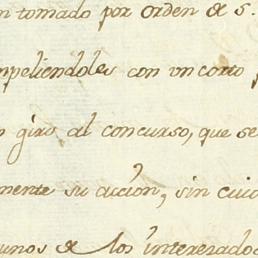 n tomado por orden de S.
mpeliendoles con un corto
n giro al concurso, que se
mente su accion, sin cui
unos de los interesados